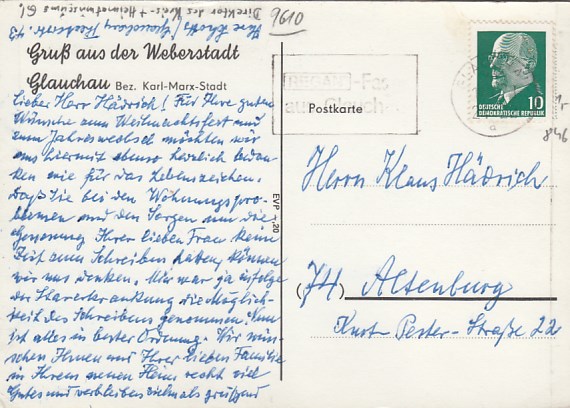 9610
Gruß aus der Weberstadt
Glauchau Bez. Karl-Marx-Stadt
Lieber Herr Hädrich! Für Ihre guten
Wünsche zum Weihnachtsfest und
zum Jahreswechsel möchten wir
uns hiermit ebenso herzlich bedan-
ken wie für das Lebenszeichen.
Daß Sie bei den Wohnungspro-
blemen und den Sorgen um die
Genesung Ihrer lieben Frau keine
Zeit zum Schreiben haben, können
wir uns denken. Mir war ja infolge
der Starerkrankung die Möglich-
keit des Schreibens genommen. Nun
ist alles in bester Ordnung. Wir wün-
schen Ihnen und Ihrer lieben Familie
in Ihrem neuen Heim recht viel
Gutes und verbleiben vielmals grüßend
Direktor des Kreis- + Heimatmuseums Gl.
EVP -,20
Postkarte
aus Glauchau
DEUTSCHE
DEMOKRATISCHE REPUBLIK
10
846
Herrn Klaus Hädrich
(74) Altenburg
Kurt-Pester-Straße 22